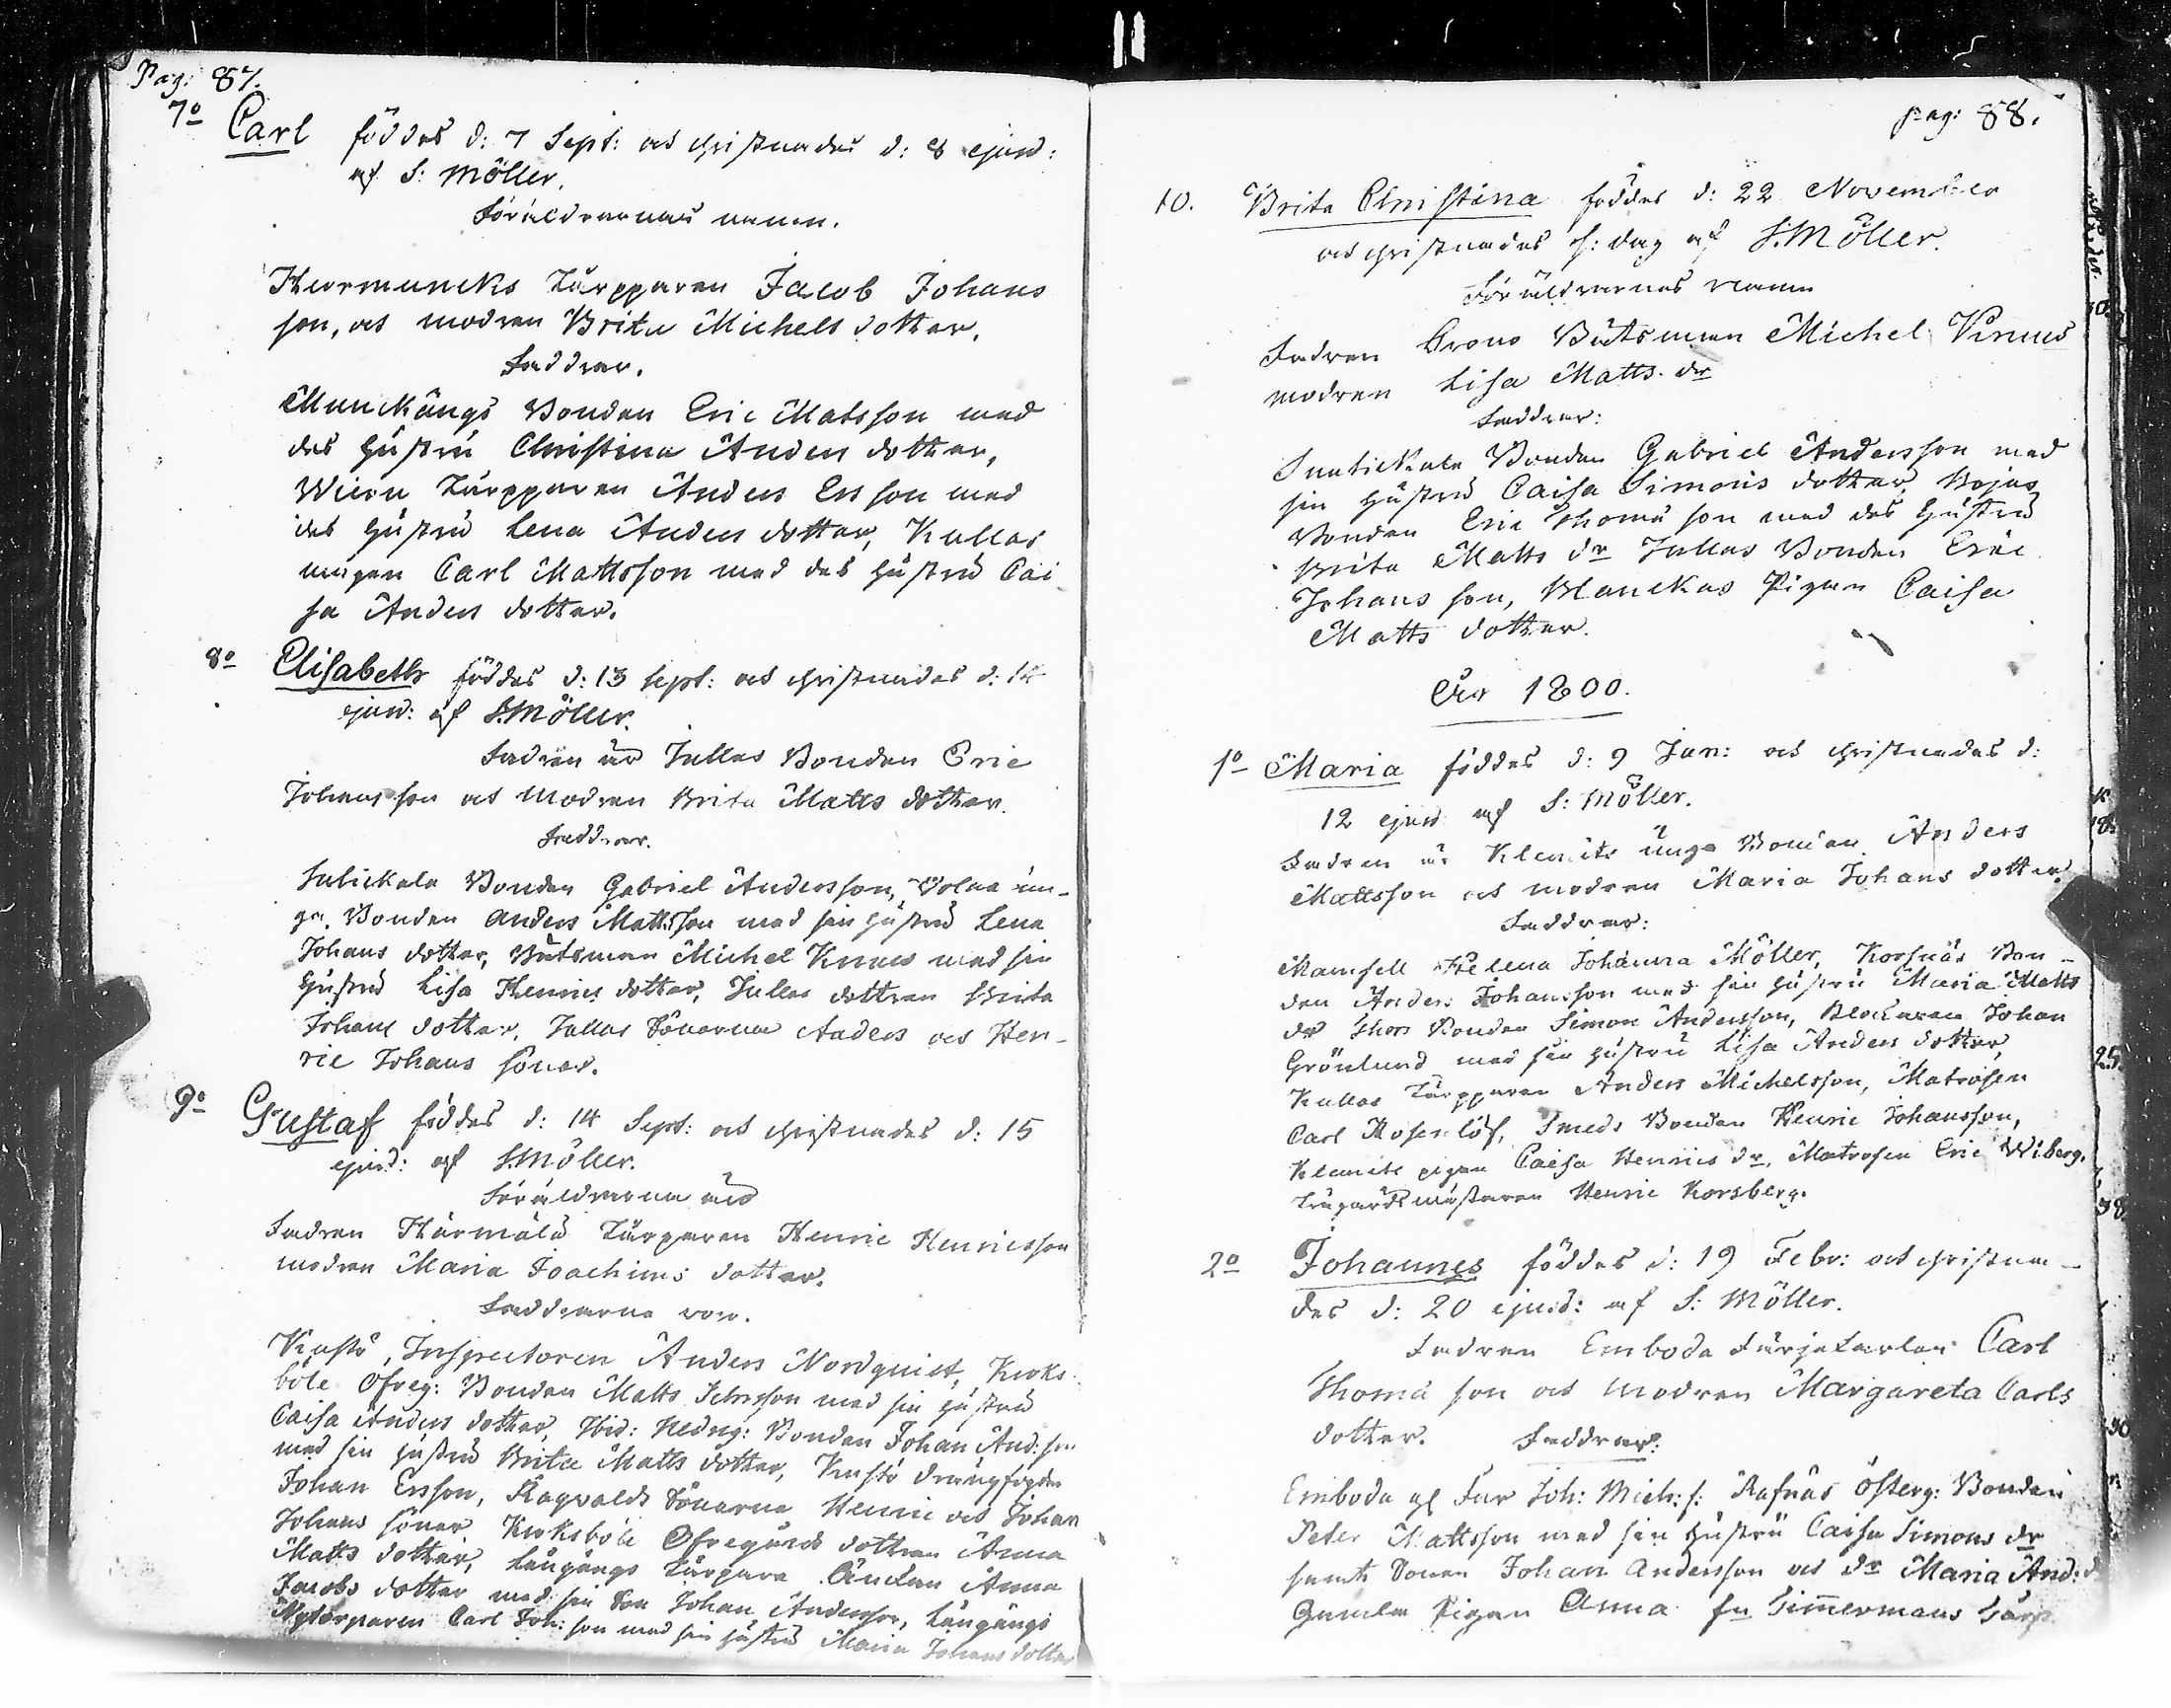 Pag: 87.
7o Carl föddes d: 7 Sept: och christnades d: 8 ejusd:
af S: Möller.
Föräldrarnas namn.
Torpparen Jacob Johans
son, och modren Brita Michels dotter.
Faddrar.
Munckängs Bonden Eric Matsson med
des hustru Christina Anders dotter,
Torpparen Anders Ersson med
des hustru Lena Anders dotter, Kullas
Carl Mattsson med des hustru Cai
sa Anders dotter.
8o Elisabeth föddes d: 13 Sept: och christnades d: 14
ejusd: af S. Möller.
Fadren är Jullas Bonden Eric
Johansson och Modren Brita Matts dotter.
Faddrar.
Bonden Gabriel Andersson, un-
ga Bonden Anders Mattsson med sin hustru Lena
Johans dotter, Båtsman Michel med sin
hustru Lisa Henrics dotter, Jullas dottren Brita
Johans dotter, Jullas Sönerna Anders och Hen-
ric Johans söner.
9o Gustaf föddes d: 14 Sept: och christnades d: 15
ejusd: af S. Möller.
Föräldrarna äro
Fadren Härmälä Torparen Henric Henricsson
modren Maria Joachims dotter.
Faddrarna voro.
Kustö, Inspectoren Anders Nordquist, Kroks-
böle Öfreg: Bonden Matts Johnsson med sin hustru
Caisa Anders dotter, Ibid: Nedreg: Bonden Johan And:son
med sin hustru Brita Matts dotter, Kustö drängfogden
Johan Ersson, Ragvalds Sönerna Henric och Johan
Johans söner, Kroksböle Öfregårds dottren Anna
Matts dotter, Långängs Torpare Änkan Anna
Jacobs dotter med sin Son Johan Andersson, Långängs
Nytorparen Carl Joh:son med sin hustru Maria Johans dotter
pag: 88.
10. Brita Christina föddes d: 22 November
och christnades s: dag af S. Möller.
Föräldrarnes namn
Fadren Crono Båtsman Michel
modren Lisa Matts dr
Faddrar:
Bonden Gabriel Andersson med
sin hustru Caisa Simons dotter, Bojas
Bonden Eric Thomæ son med des hustru
Brita Matts dr Jullas Bonden Eric
Johans son, Blanckas Pigan Caisa
Matts dotter.
År 1800.
1o Maria föddes d: 9 Jan: och christnades d:
12 ejusd af S: Möller.
Fadren är Klemets unga Bonden Anders
Mattsson och modren Maria Johans dotter.
Faddrar:
Mamsell Helena Johanna Möller, Korsnäs Bon-
den Anders Johansson med sin hustru Maria Matts
dr Thors Bonden Simon Andersson, Klockaren Johan
Grönlund med sin hustru Lisa Anders dotter,
Kullas Torpparen Anders Michelsson, Matrosen
Carl Rosenlöf, Smeds Bonden Henric Johansson,
Klemets pigan Caisa Henrics dr, Matrosen Eric Wiberg,
Trägårdsmästaren Henric Korsberg.
2o Johannes föddes d: 19 Febr: och christna-
des d: 20 ejusd: af S: Möller.
Fadren Emboda Färjekarlen Carl
Thomæ son och Modren Margareta Carls
dotter. Faddrar:
Emboda gl Far Joh: Mich: s: Rafnäs Österg: Bonden
Peter Mattsson med sin hustru Caisa Simons dr
samt Sonen Johan Andersson och dr Maria And: d
Gamla Pigan Anna fr Timmermans Torp